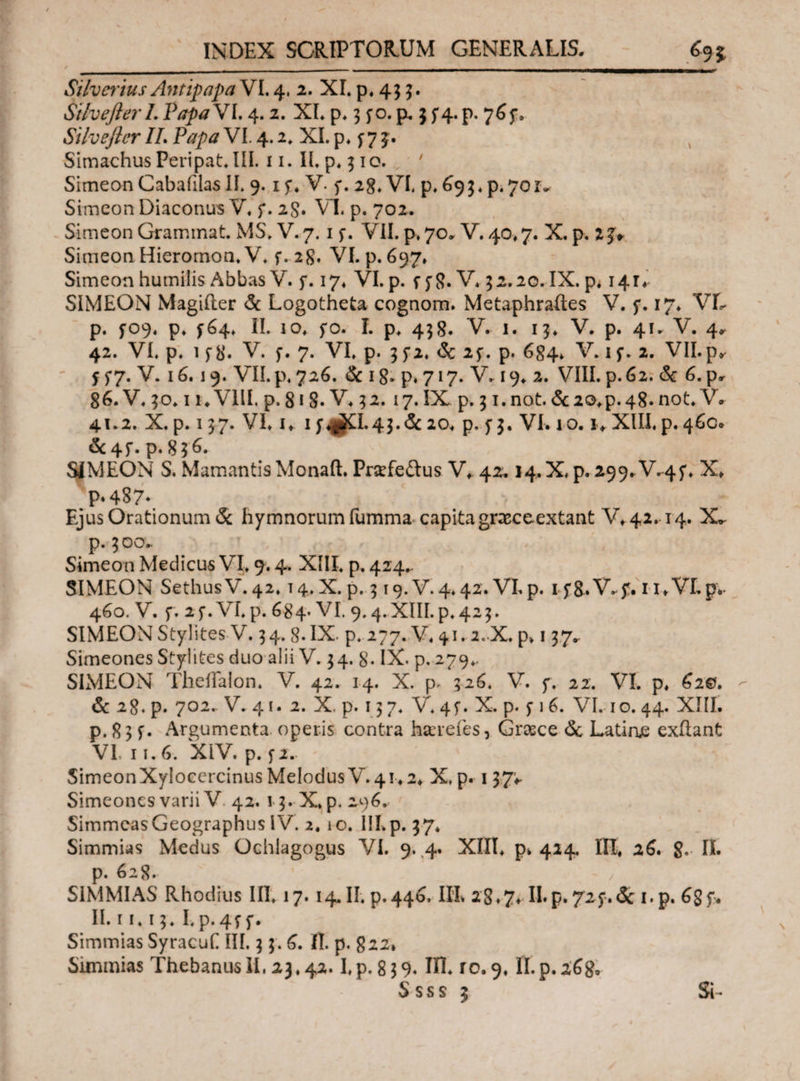 INDEX SCRIPTORUM GENERALIS. 693
Silverius Antipapa VI. 4. 2. XI. p. 433.
Silvester I. Papa VI. 4. 2. XI. p. 350. p. 354. p. 765.
Silvester II. Papa VI. 4. 2. XI. p. 573.
Simachus Peripat. III. 11. II. p. 310.
Simeon Cabasilas II. 9. 15. V. 5. 28. VI. p. 693. p. 701.
Simeon Diaconus V. 5. 28. VI. p. 702.
Simeon Grammat. MS. V. 7. 15. VII. p. 70. V. 40. 7. X. p. 23.
Simeon Hieromon. V. 5. 28. VI. p. 697.
Simeon humilis Abbas V. 5. 17. VI. p. 558. V. 32. 20. IX. p. 141.
SIMEON Magister & Logotheta cognom. Metaphrastes V. 5. 17. VI.
p. 509. p. 564. II. 10. 50. I. p. 438. V. 1. 13. V. p. 41. V. 4.
42. VI. p. 158. V. 5. 7. VI. p. 352. & 25. p. 684. V. 15. 2. VII. p.
557. V. 16. 19. VII. p. 726. & 18. p. 717. V. 19. 2. VIII. p. 62. & 6. p.
86. V. 30. 11. VIII. p. 818. V. 32. 17. IX. p. 31. not. & 20. p. 48. not. V.
41. 2. X. p. 137. VI. 1. 15. XI. 43. & 20. p. 53. VI. 10. 1. XIII. p. 460.
& 45. p. 836.
SIMEON S. Mamantis Monast. Præfectus V. 42. 14. X. p. 299. V. 45. X.
p. 487.
Ejus Orationum & hymnorum summa capita græce extant V. 42. 14. X.
p. 300.
Simeon Medicus VI. 9. 4. XIII. p. 424.
SIMEON Sethus V. 42. 14. X. p. 319. V. 4. 42. VI. p. 158. V. 5. 11. VI. p.
460. V. 5. 25. VI. p. 684. VI. 9. 4. XIII. p. 423.
SIMEON Stylites V. 34. 8. IX. p. 277. V. 41. 2. X. p. 137.
Simeones Stylites duo alii V. 34. 8. IX. p. 279.
SIMEON Thessalon. V. 42. 14. X. p. 326. V. 5. 22. VI. p. 620.
& 28. p. 702. V. 41. 2. X. p. 137. V. 45. X. p. 516. VI. 10. 44. XIII.
p. 835. Argumenta operis contra hæreses, Græce & Latine exstant
VI. 11. 6. XIV. p. 52.
Simeon Xylocercinus Melodus V. 41. 2. X. p. 137.
Simeones varii V. 42. 13. X. p. 296.
Simmeas Geographus IV. 2. 10. III. p. 37.
Simmias Medus Ochlagogus VI. 9. 4. XIII. p. 424. III. 26. 8. II.
p. 628.
SIMMIAS Rhodius III. 17. 14. II. p. 446. III. 28. 7. II. p. 725. & 1. p. 685.
II. 11. 13. I. p. 455.
Simmias Syracus. III. 33. 6. II. p. 822.
Simmias Thebanus II. 23. 42. I. p. 839. III. 10. 9. II. p. 268.
Ssss 3 Si-